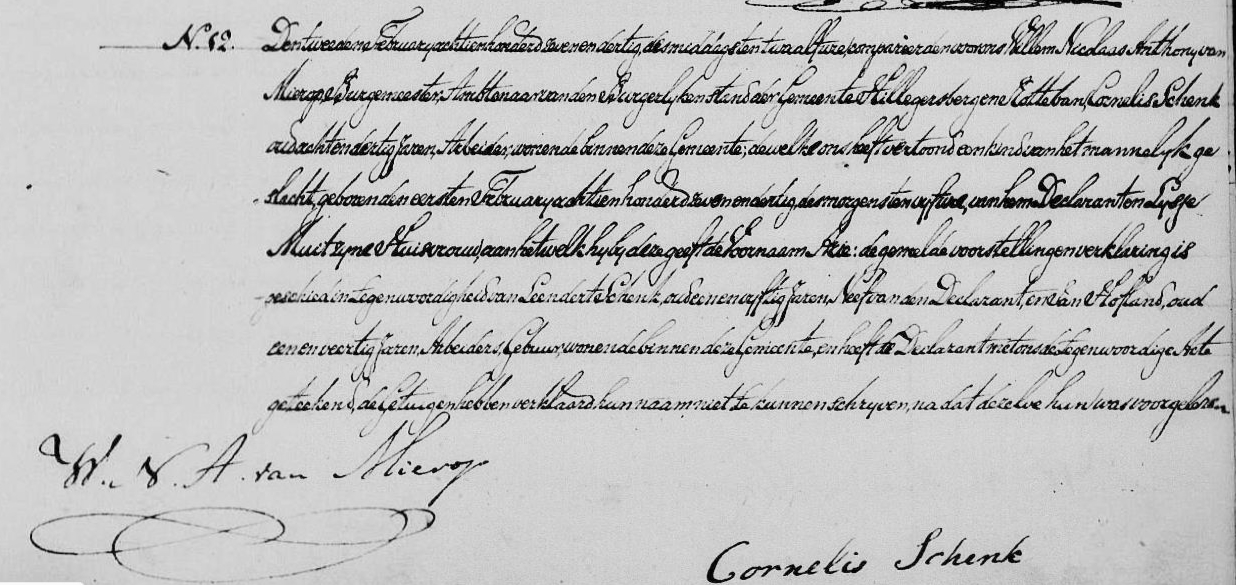 N. 12. Den tweeden February achtienhonderd zevenendertig, des middags ten twaalf ure, compareerden voor ons Willem Nicolaas Anthony van
Mierop, Burgemeester, Ambtenaar van den Burgerlyken stand der Gemeente Hillegersberg en Rotteban, Cornelis Schenk
oud acht en dertig Jaren, Arbeider, wonende binnen deze Gemeente; dewelke ons heeft vertoond een kind van het mannelyk ge
slacht, geboren den eersten February achtien honderd zevenendertig des morgens ten vyf ure, van hem Declarant en Lysje
Muit zyne Huisvrouw, aan hetwelk hy by deze geeft de Voornaam Arie: de gemelde voorstelling en verklaring is
geschied in tegenwoordigheid van Leendert Schenk, oud een en vyftig Jaren, Neef van den Declarant, en Jan Hofland, oud
een en veertig Jaren, Arbeiders, Gebuur, wonende binnen deze Gemeente, en heeft de Declarant met ons de tegenwoordige Acte
geteekend, de Getuigen hebben verklaard hun naam niet te kunnen schryven, na dat dezelve hun was voorgelezen
W. N. A. van Mierop
Cornelis Schenk